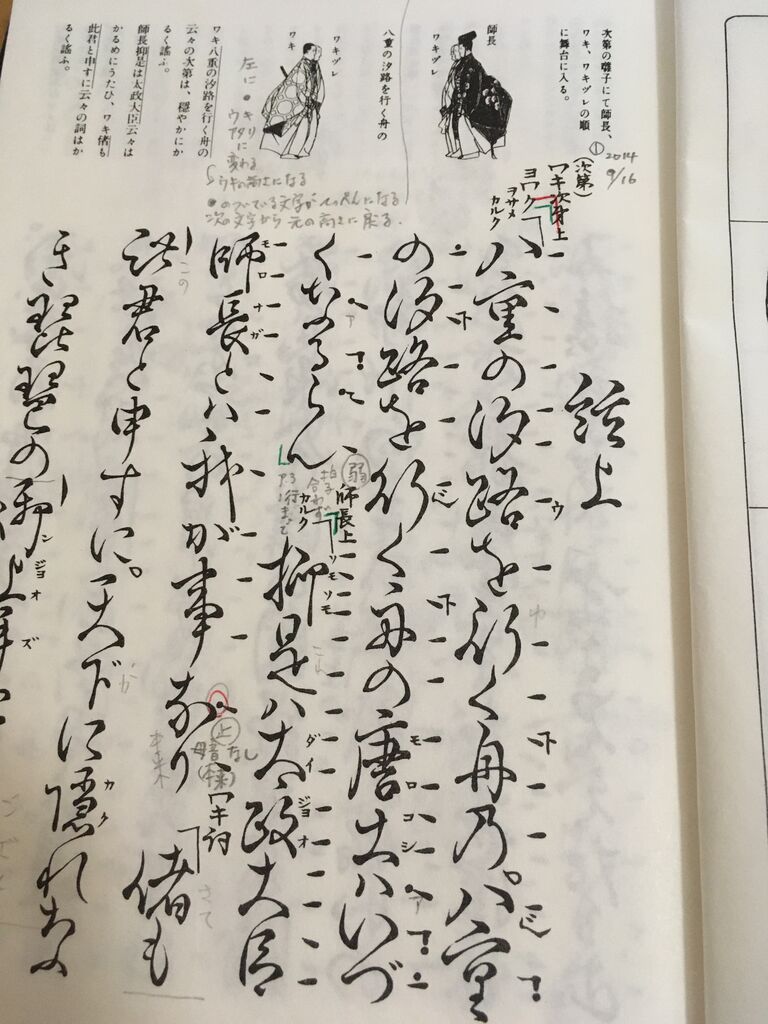 次第の囃子にて師長、
ワキ、ワキヅレの順
に舞台に入る。
師長
ワキヅレ
八重の汐路を行く舟の
ワキヅレ
ワキ
ワキ八重の汐路を行く舟の
云々の次第は、穏やかにか
るく謡ふ。
師長抑是は太政大臣云々は
かるめにうたひ、ワキ偖も
此君と申すに云々の詞はか
るく謡ふ。
① 2014
9/16
左に
ウキリ
アタリに
変わる
ウキの高さになる
次の文字から元の高さに戻る.
謡上
(次第)
ワキ次第上
ヨワク
ヲサメ
カルク
八重の汐路を行く舟乃。八重
の汐路を行く舟の唐土ハいづ
モロコシ
くなるらん
弱
師長上
カルク
拍子
合わず
抑是ハ太政大臣
ソモソモ
ダイジョオ
師長とハ我が事なり
モロナガ
上
母音なし
ワキ詞
偖も
さて
此君と申すに。天下に隠れなき
この
カク
き琵琶の